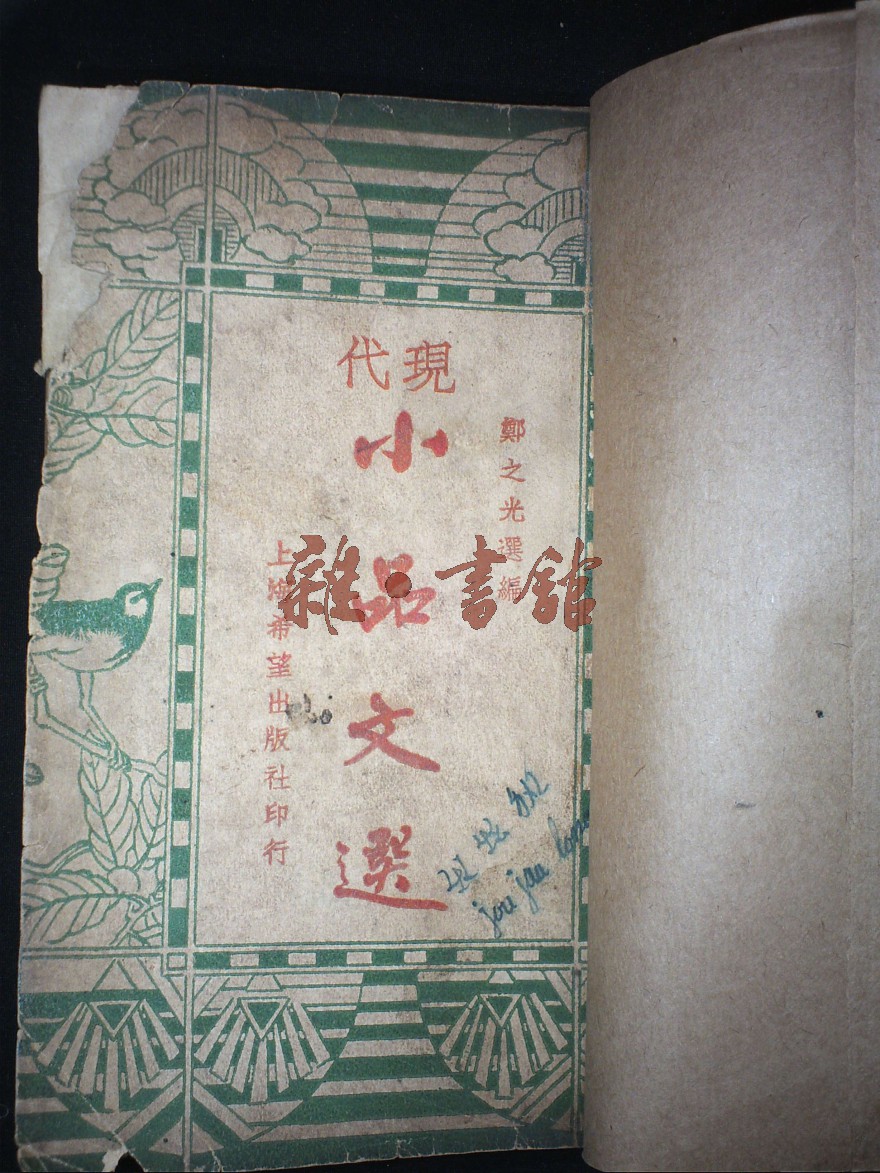 現代
小品文選
鄭之光選編
上海希望出版社印行
雜·書館
jou jau